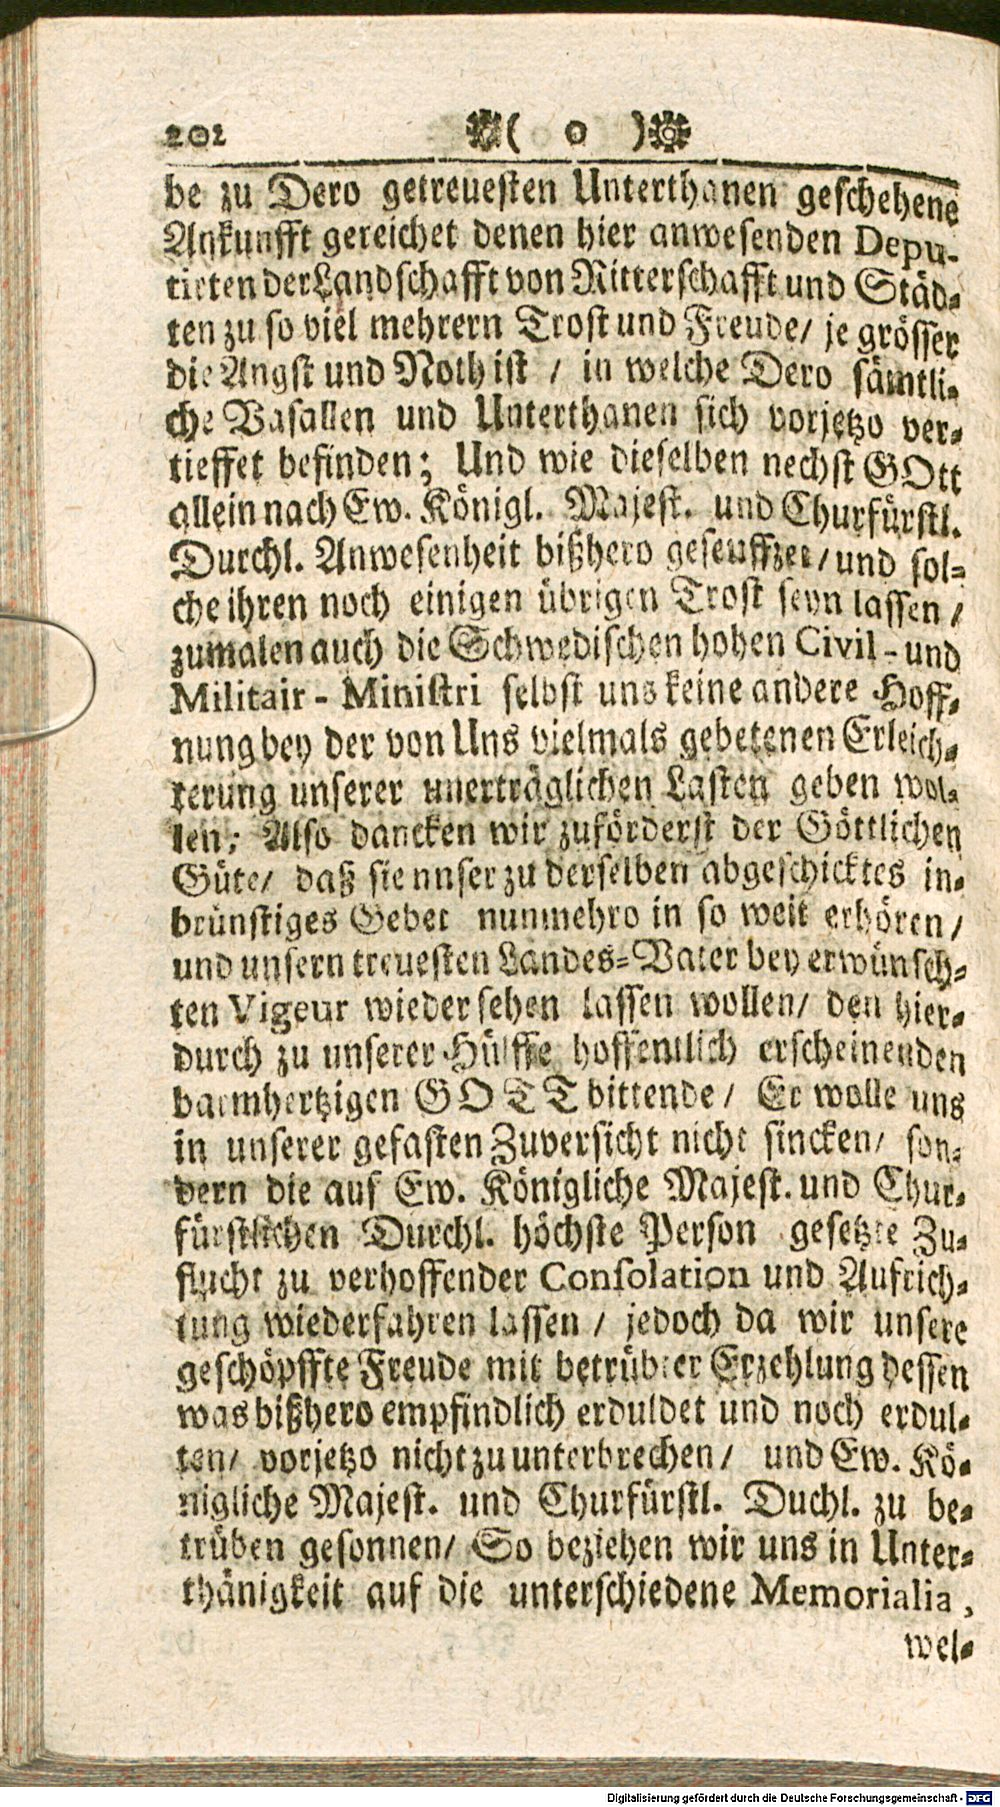 202 ( o )
be zu Dero getreuesten Unterthanen geschehene
Ankunfft gereichet denen hier anwesenden Depu-
tirten der Landschafft von Ritterschafft und Städ-
ten zu so viel mehrern Trost und Freude/ je grösser
die Angst und Noth ist / in welche Dero sämtli-
che Vasallen und Unterthanen sich vorjetzo ver-
tieffet befinden; Und wie dieselben nechst GOtt
allein nach Ew. Königl. Majest. und Churfürstl.
Durchl. Anwesenheit bißhero geseuffzet/ und sol-
che ihren noch einigen übrigen Trost seyn lassen /
zumalen auch die Schwedischen hohen Civil - und
Militair - Ministri selbst uns keine andere Hoff-
nung bey der von Uns vielmals gebetenen Erleich-
terung unserer unerträglichen Lasten geben wol-
len; Also dancken wir zuförderst der Göttlichen
Güte/ daß sie nnser zu derselben abgeschicktes in-
brünstiges Gebet nunmehro in so weit erhören /
und unsern treuesten Landes-Vater bey erwünsch-
ten Vigeur wieder sehen lassen wollen/ den hier-
durch zu unserer Hülffe hoffentlich erscheinenden
barmhertzigen GOTT bittende / Er wolle uns
in unserer gefasten Zuversicht nicht sincken/ son-
dern die auf Ew. Königliche Majest. und Chur-
fürstlichen Durchl. höchste Person gesetzte Zu-
flucht zu verhoffender Consolation und Aufrich-
tung wiederfahren lassen / jedoch da wir unsere
geschöpffte Freude mit betrübter Erzehlung dessen
was bißhero empfindlich erduldet und noch erdul-
ten/ vorjetzo nicht zu unterbrechen/ und Ew. Kö-
nigliche Majest. und Churfürstl. Duchl. zu be-
trüben gesonnen/ So beziehen wir uns in Unter-
thänigkeit auf die unterschiedene Memorialia,
wel-
Digitalisierung gefördert durch die Deutsche Forschungsgemeinschaft - DFG